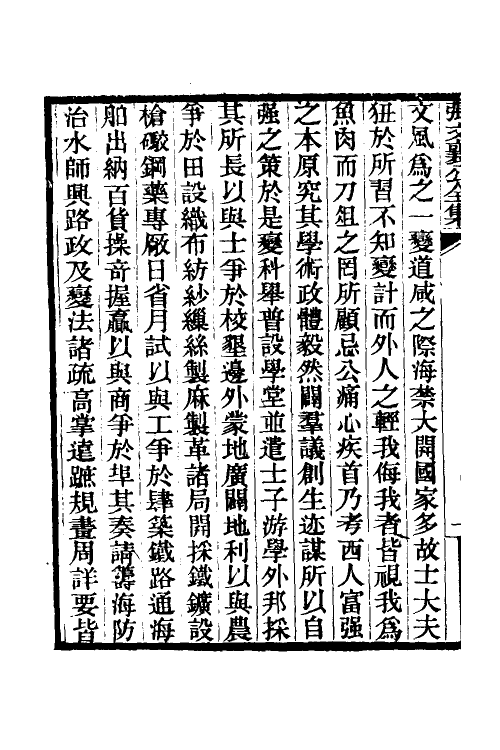 文風爲之一變道咸之際海禁大開國家多故士大夫
狃於所習不知變計而外人之輕我侮我者皆視我爲
魚肉而刀俎之罔所顧忌公痛心疾首乃考西人富强
之本原究其學術政體毅然闢羣議創生迹謀所以自
强之策於是變科舉普設學堂並遣士子游學外邦採
其所長以與士爭於校墾邊外蒙地廣闢地利以與農
爭於田設織布紡紗繅絲製麻製革諸局開採鐵鑛設
槍礮鋼藥專厰日省月試以與工爭於肆築鐵路通海
舶出納百貨操奇握贏以與商爭於埠其奏請籌海防
治水師興路政及變法諸疏高掌遠蹠規畫周詳要皆